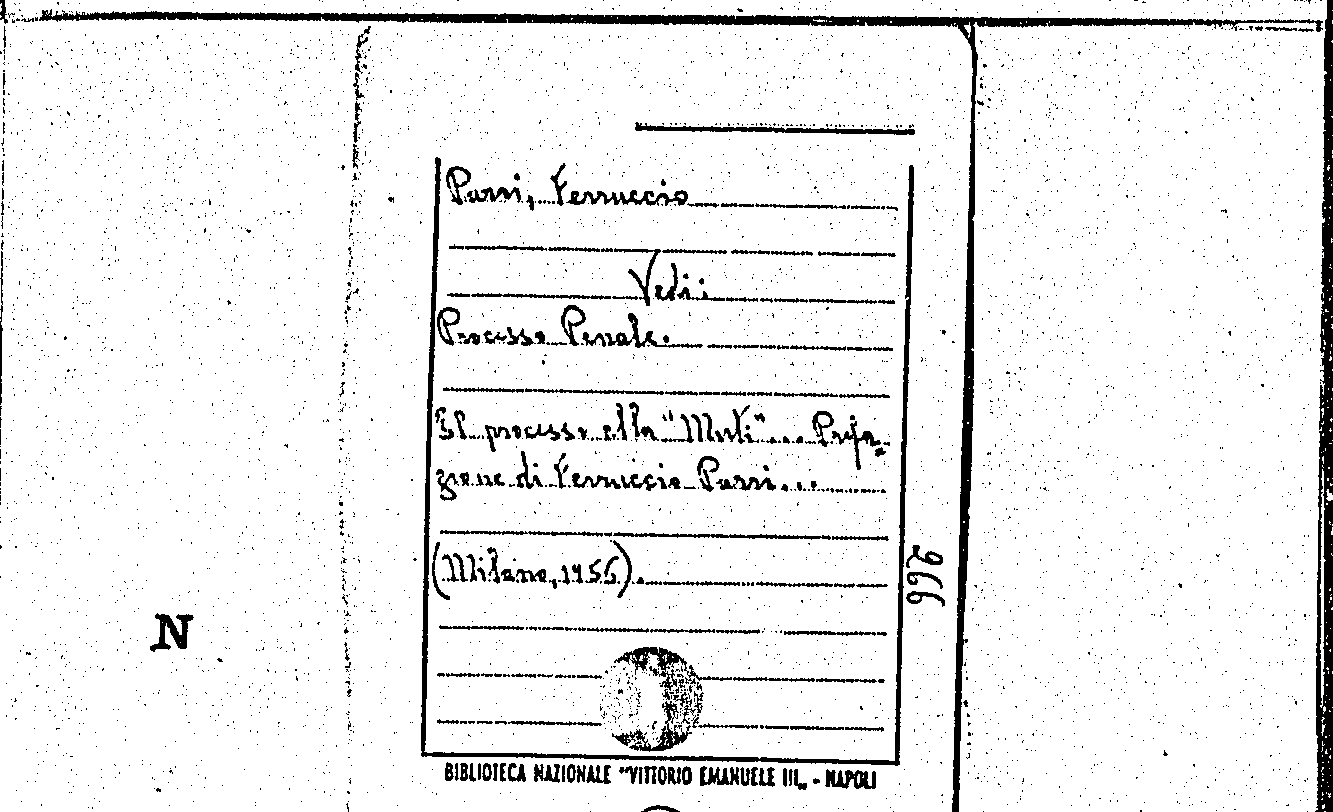 Parri, Ferruccio
Vedi:
Processo Penale.
Il processo alla "Muti"... Prefa=
zione di Ferruccio Parri...
(Milano, 1956).
966
N
BIBLIOTECA NAZIONALE "VITTORIO EMANUELE III„ - NAPOLI